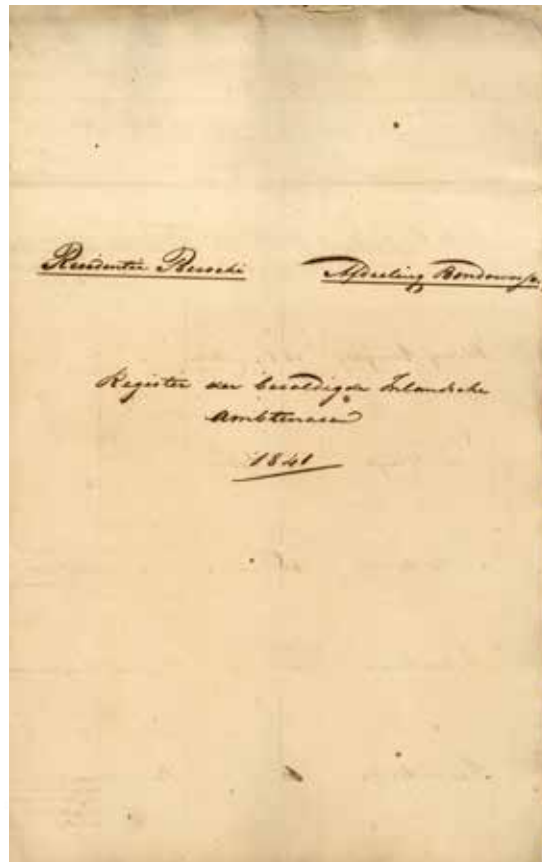 Residentie Bessoeki
Afdeeling Bondowosso
Register der bezoldigde Inlandsche
Ambtenaren
1841